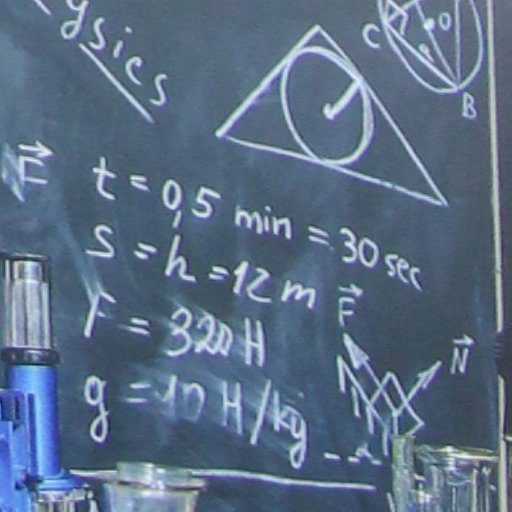 ysics
C
O
B
F
t = 0,5 min = 30 sec
S = h = 12 m
F = 320 H
g = 10 H/kg
F
N